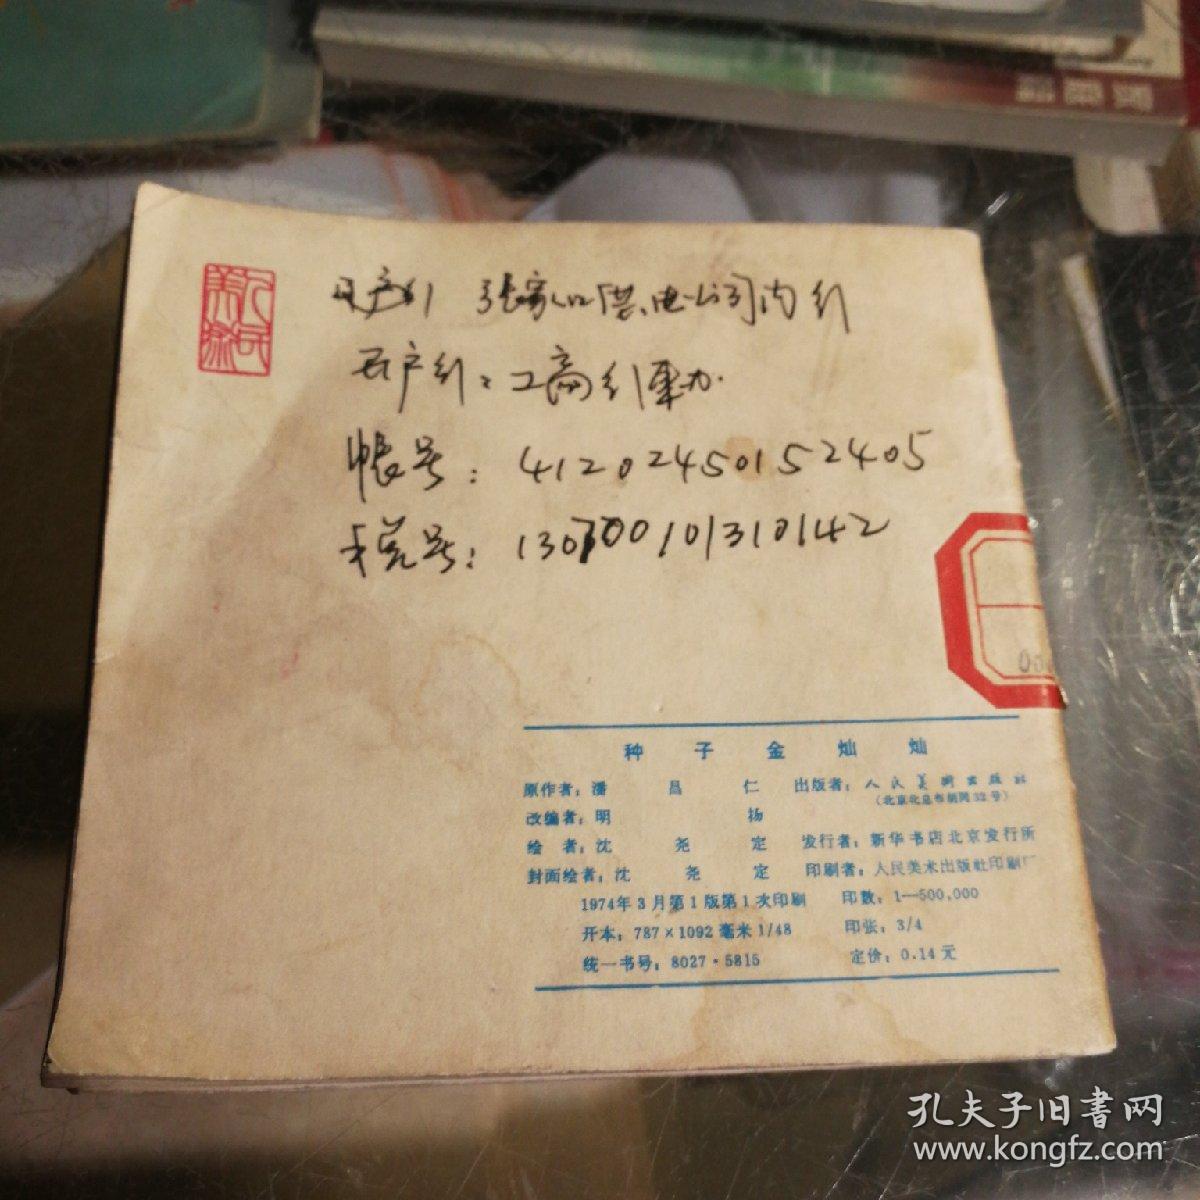 人民美术
张家口供电公司内部
开户行：工商行桥办.
帐号：41202450152405
税号：130700101310142
00
种子金灿灿
原作者：潘昌仁 出版者：人民美术出版社
（北京北总布胡同32号）
改编者：明扬
绘者：沈尧定 发行者：新华书店北京发行所
封面绘者：沈尧定 印刷者：人民美术出版社印刷厂
1974年3月第1版第1次印刷 印数：1—500,000
开本：787×1092毫米1/48 印张：3/4
统一书号：8027·5815 定价：0.14元
孔夫子旧书网
www.kongfz.com